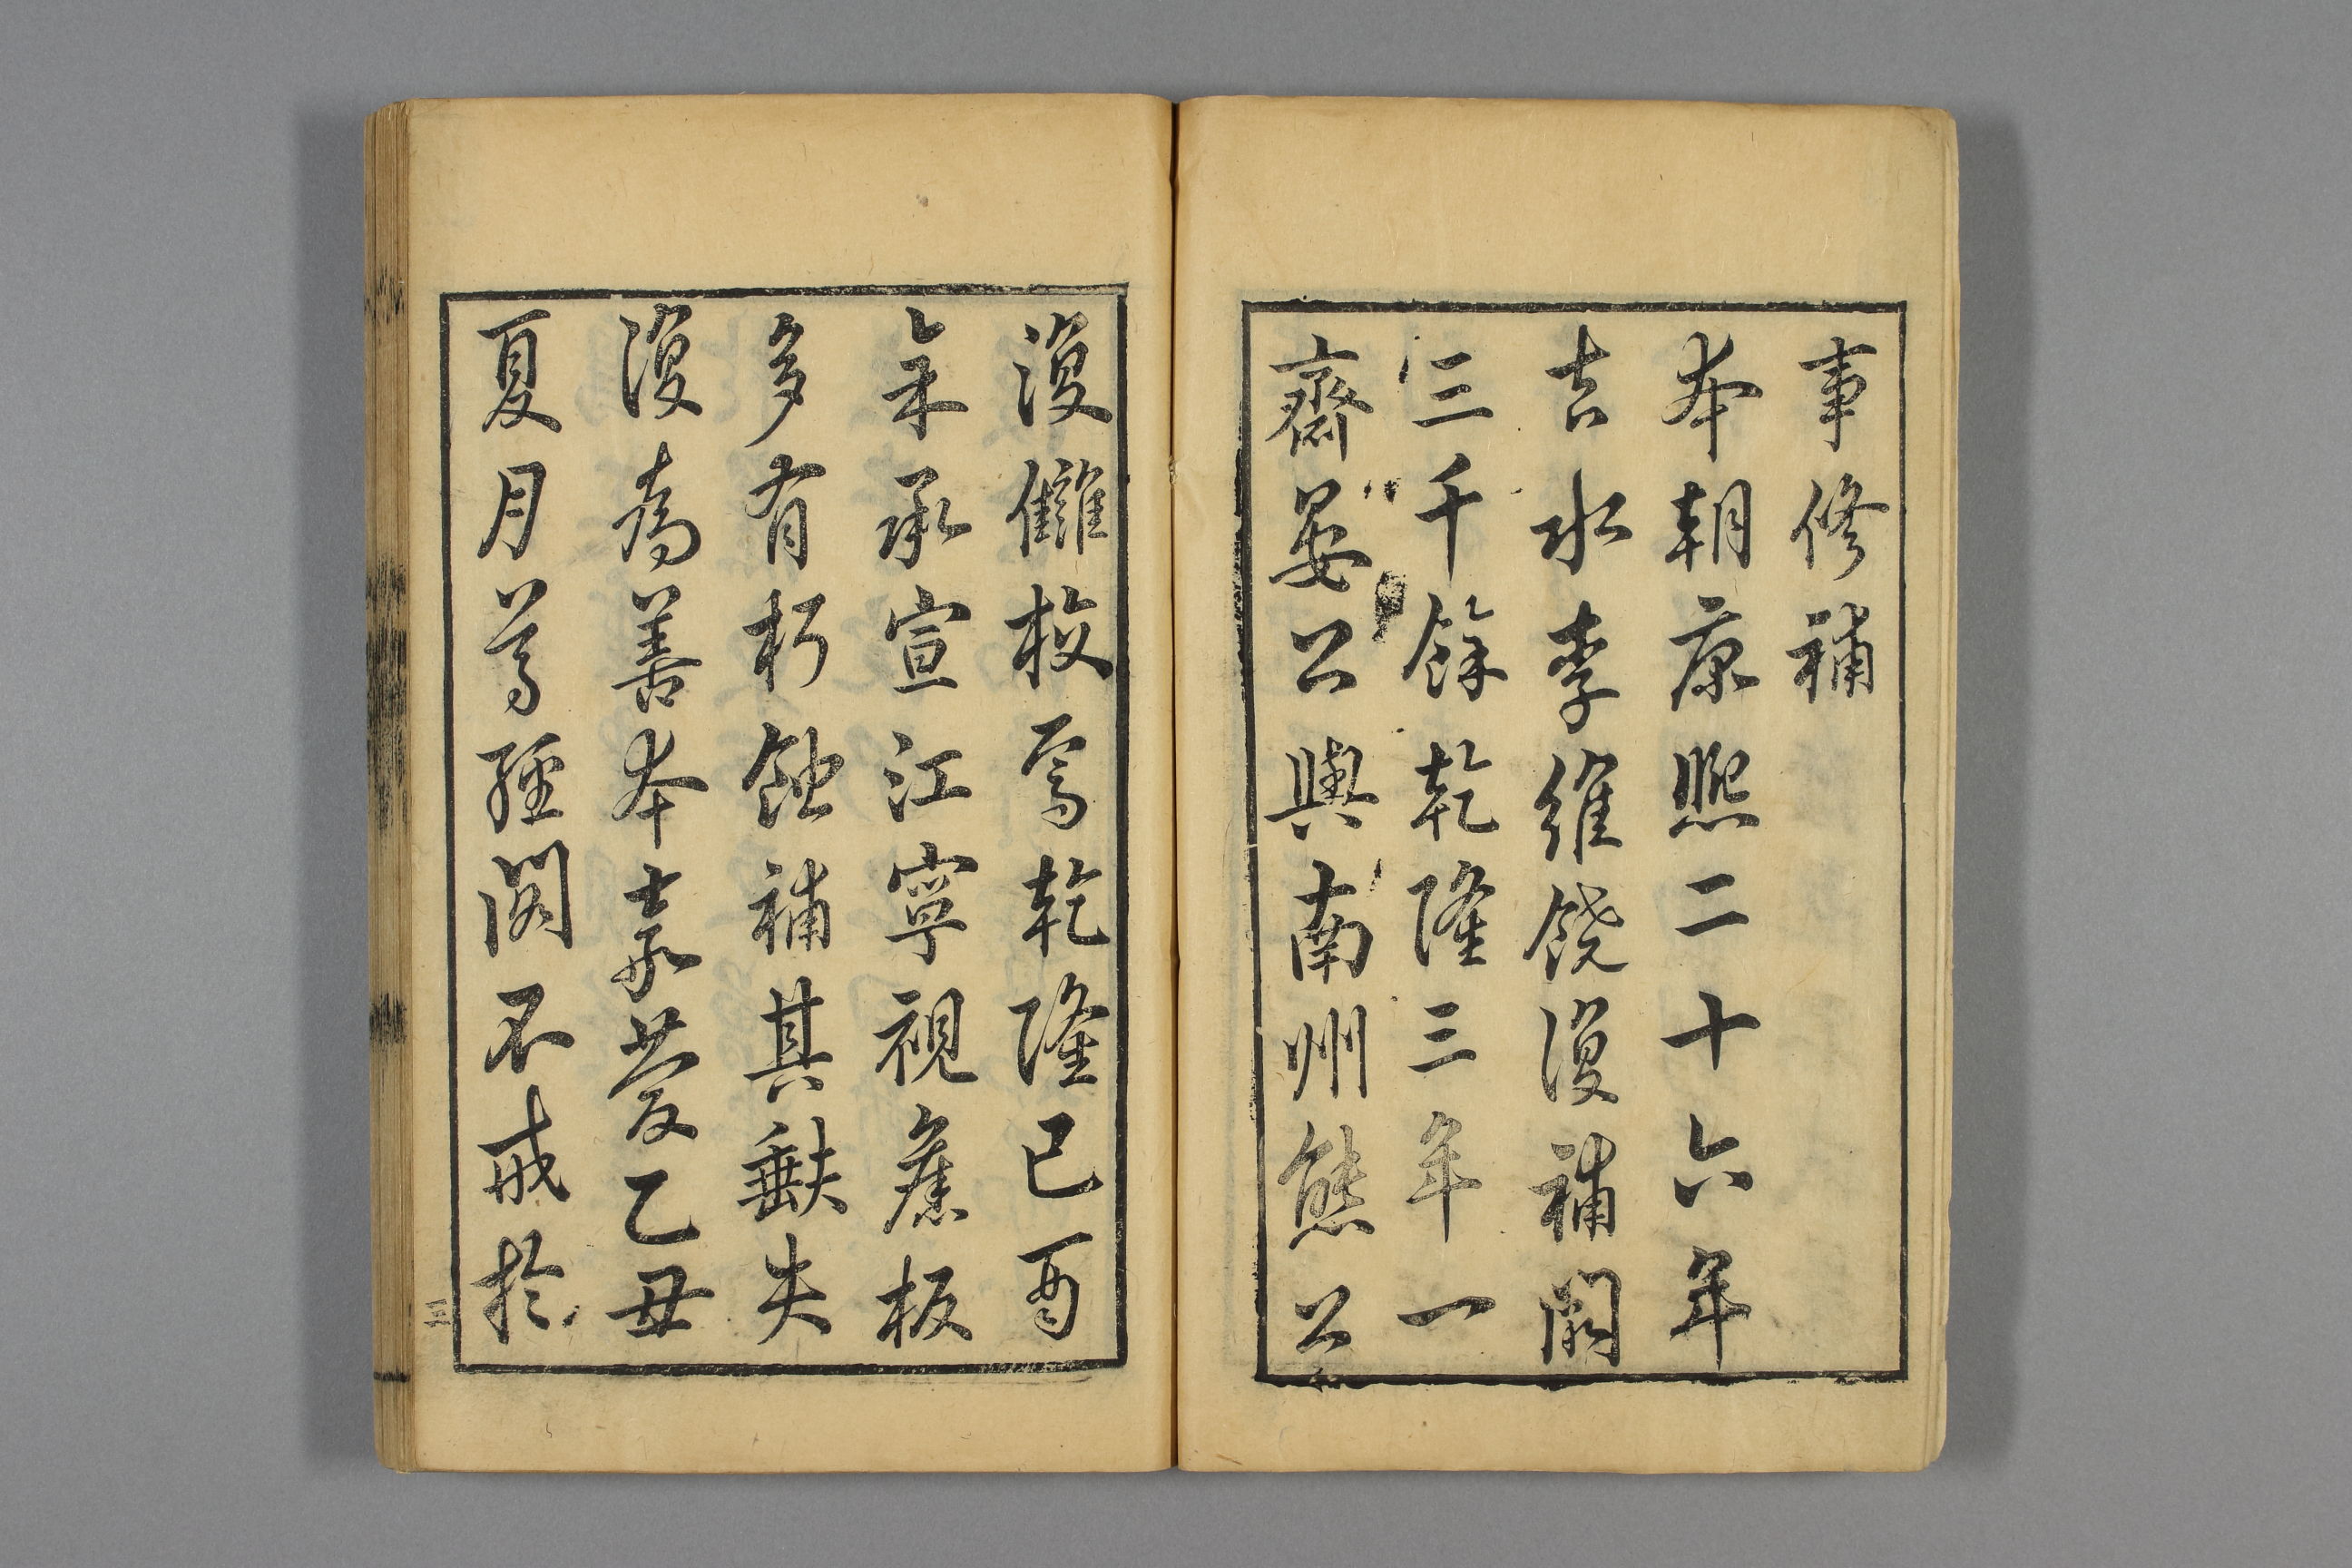 事修補
本朝康熙二十六年
吉水李維饒復補闕
三千餘乾隆三年一
齋晏公與南州熊公
復讎校焉乾隆己酉
余承宣江寧視舊板
多有朽蝕補其缺失
復為善本嘉慶乙丑
夏月尊經閣不戒於
三